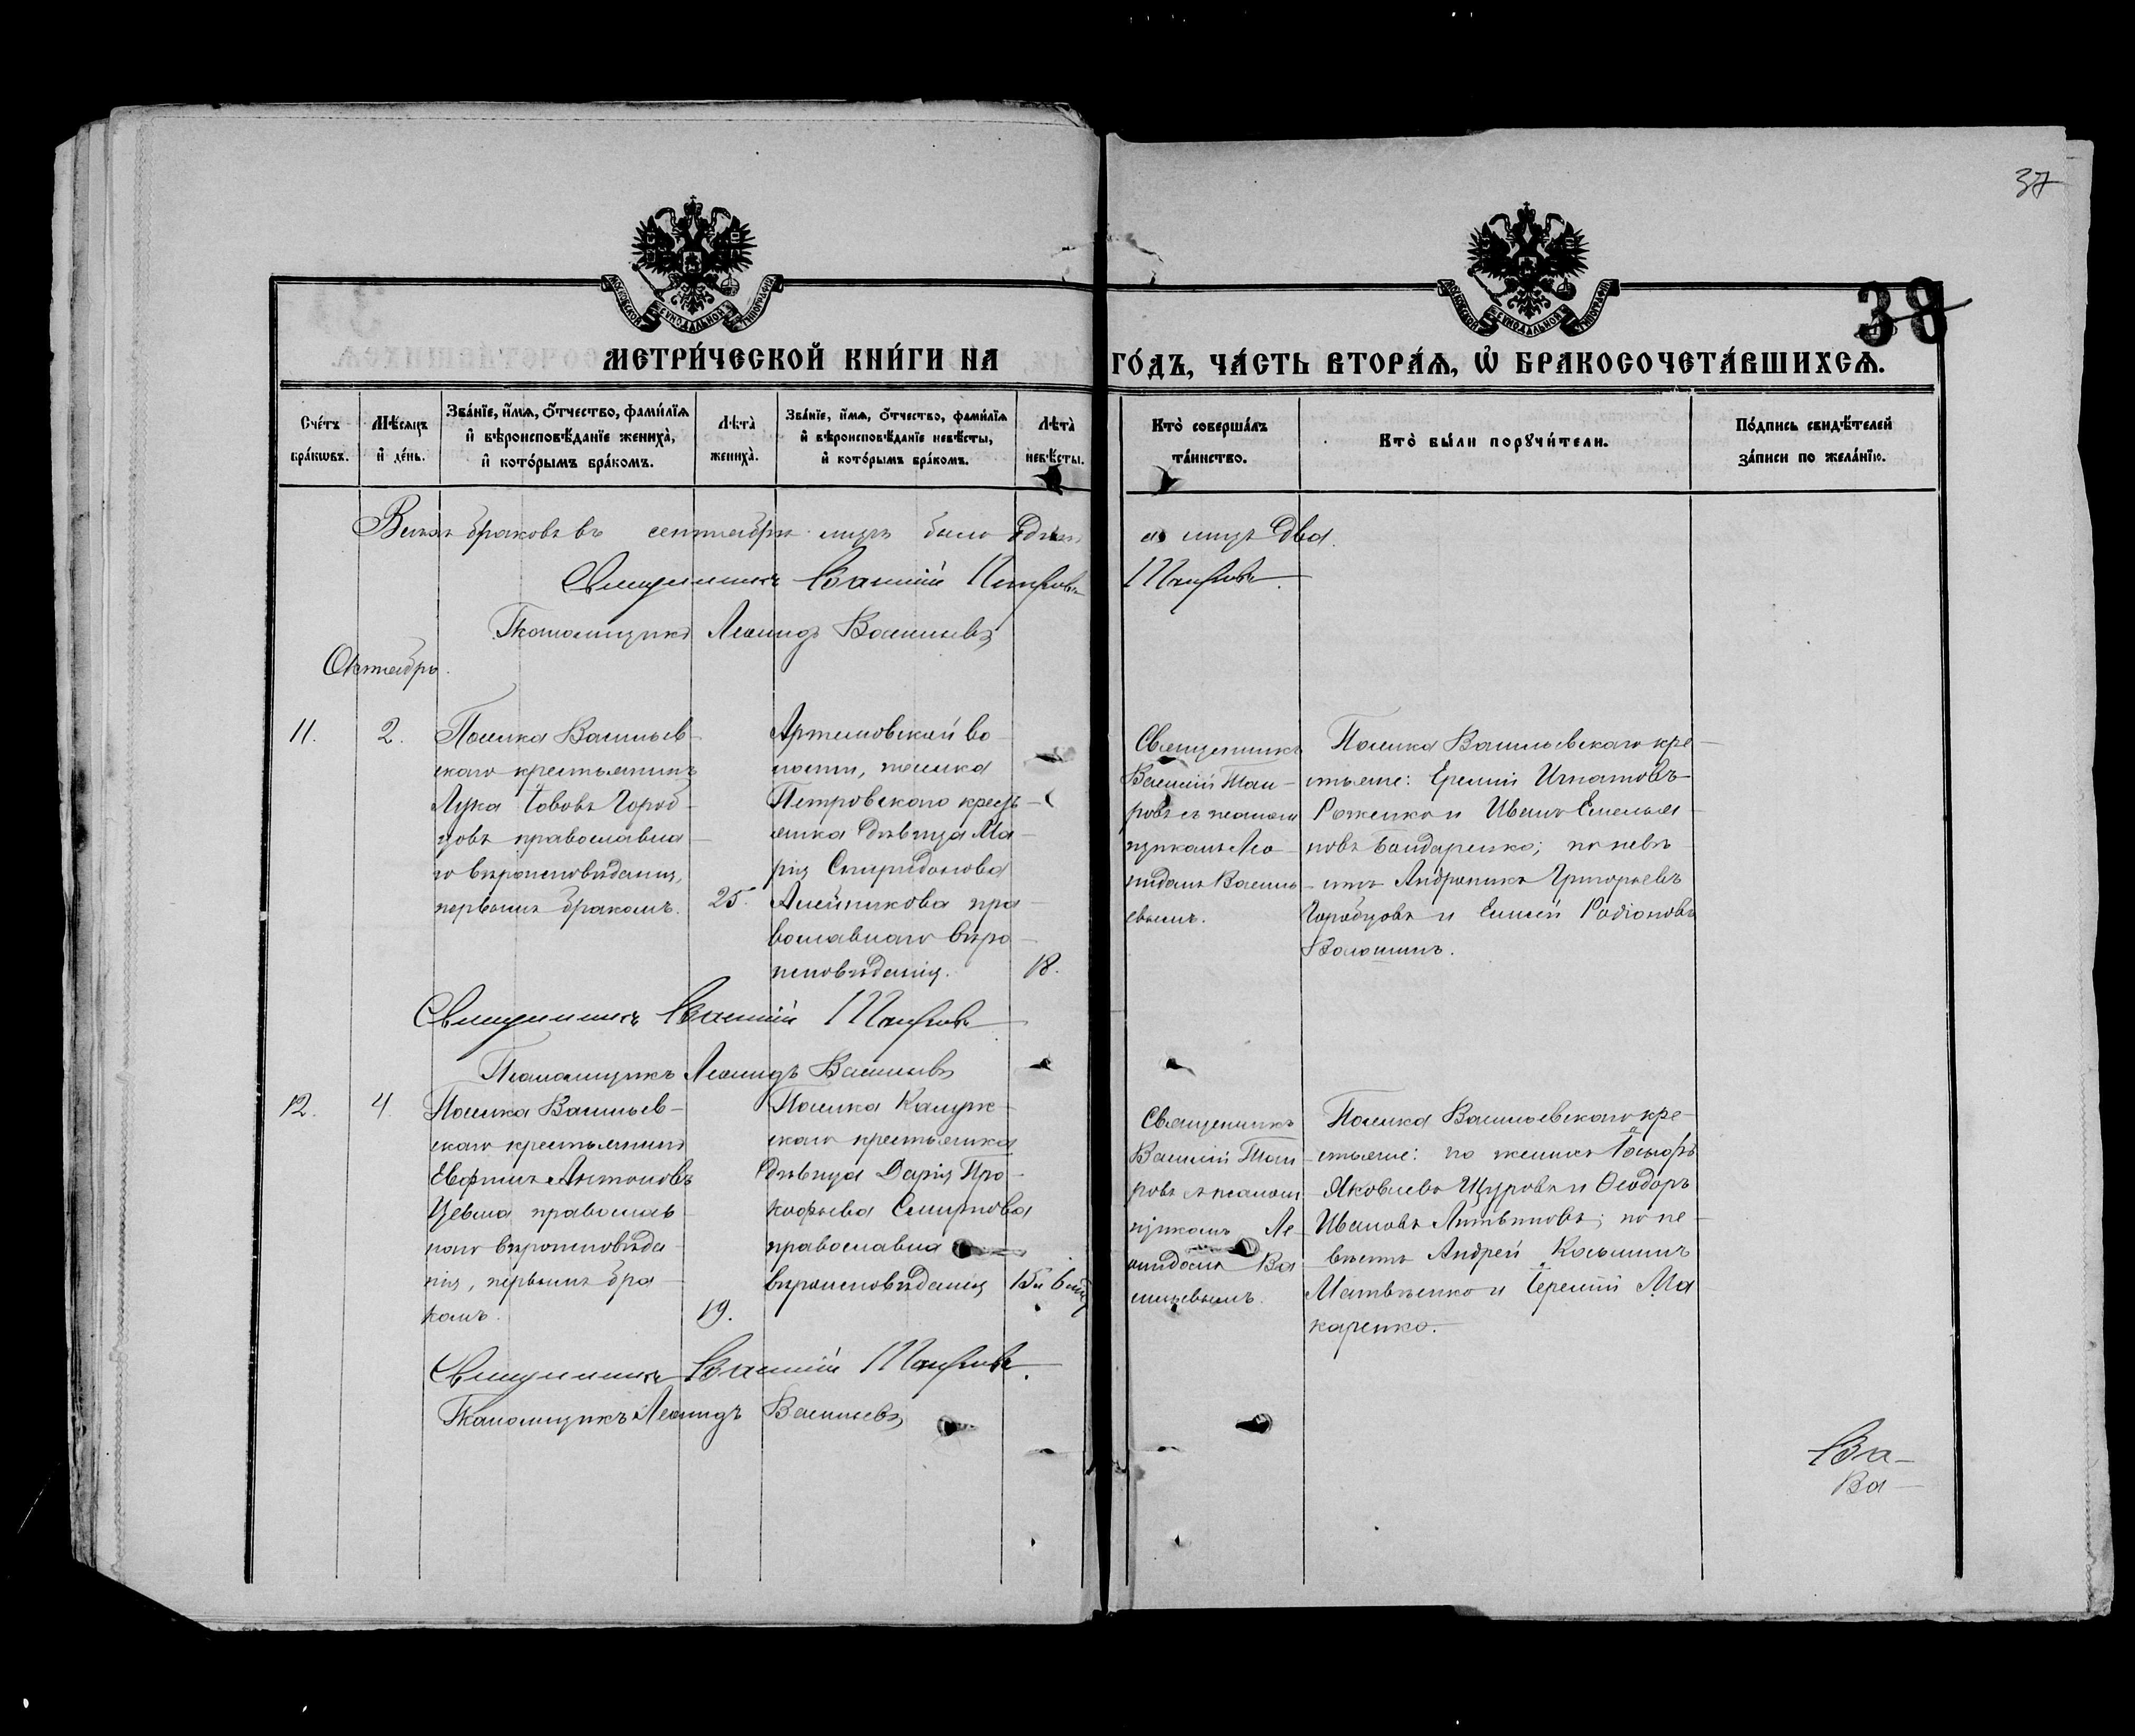 37
38
МОСКОВСКОЙ СѴНОДАЛЬНОЙ ТИПОГРАФІИ
МОСКОВСКОЙ СѴНОДАЛЬНОЙ ТИПОГРАФІИ
МЕТРИ́ЧЕСКОЙ КНИ́ГИ НА ГО́ДЪ, ЧА́СТЬ ВТОРА́Ѧ, Ѡ҆ БРАКОСОЧЕТА́ВШИХСѦ.
Сче́тъ бра́кѡвъ.
Мѣ́сѧцъ и҆ де́нь.
Зва́нїе, и҆́мѧ, ѻ҆́тчество, фами́лїѧ
и҆ вѣроисповѣ́данїе жениха̀,
и҆ кото́рымъ бра́комъ.
Лѣ́та̀ жениха̀.
Зва́нїе, и҆́мѧ, ѻ҆́тчество, фами́лїѧ
и҆ вѣроисповѣ́данїе невѣ́сты,
и҆ кото́рымъ бра́комъ.
Лѣ́та̀ невѣ́сты.
Кто̀ соверша́лъ
та́инство.
Кто̀ бы́ли порꙋчи́тели.
По́дпись свидѣ́телей
за́писи по жела́нїю.
Всѣхъ браковъ въ сентябрѣ мцѣ было два
Священникъ Василій
Псаломщикъ Леонидъ Васильевъ
Октябрь.
11.
2.
Поселка Васильев-
скаго крестьянинъ
Лука Іововъ Город-
цовъ православна-
го вѣроисповѣданія,
первымъ бракомъ.
25.
Артемовской во-
лости, поселка
Петровскаго кресть-
янка дѣвица Ма-
рія Спиридонова
Алейникова пра-
вославнаго вѣро-
исповѣданія.
18.
Священникъ
Василій
ровъ съ псалом-
щикомъ Лео-
нидомъ Василь-
евымъ.
Поселка Васильевскаго кре-
стьяне: Еремій Игнатовъ
Роженко и Иванъ Емелья-
новъ Бондаренко; по невѣ-
стѣ Андроникъ Григорьевъ
Городцовъ и Елисей Родіоновъ
Волошинъ.
Священникъ Василій
Псаломщикъ Леонидъ Васильевъ
12.
4.
Поселка Васильев-
скаго крестьянинъ
Евфимъ Антоновъ
православ-
наго вѣроисповѣда-
нія, первымъ бра-
комъ.
19.
Поселка Калуж-
скаго крестьянка
дѣвица Дарія Про-
кофьева Смирнова
православна
вѣроисповѣданія
15 и 6 мц
Священникъ
Василій
ровъ съ псалом-
щикомъ Ле-
онидомъ Ва-
сильевымъ.
Поселка Васильевскаго кре-
стьяне: по женихѣ Іосифъ
Яковлевъ Щуровъ и Ѳеодоръ
Ивановъ Литвиновъ; по не-
вѣстѣ Андрей Косьминъ
Матвѣенко и Терентій Ма-
каренко.
Священникъ Василій
Псаломщикъ Леонидъ Васильевъ
Ва-
Ва-